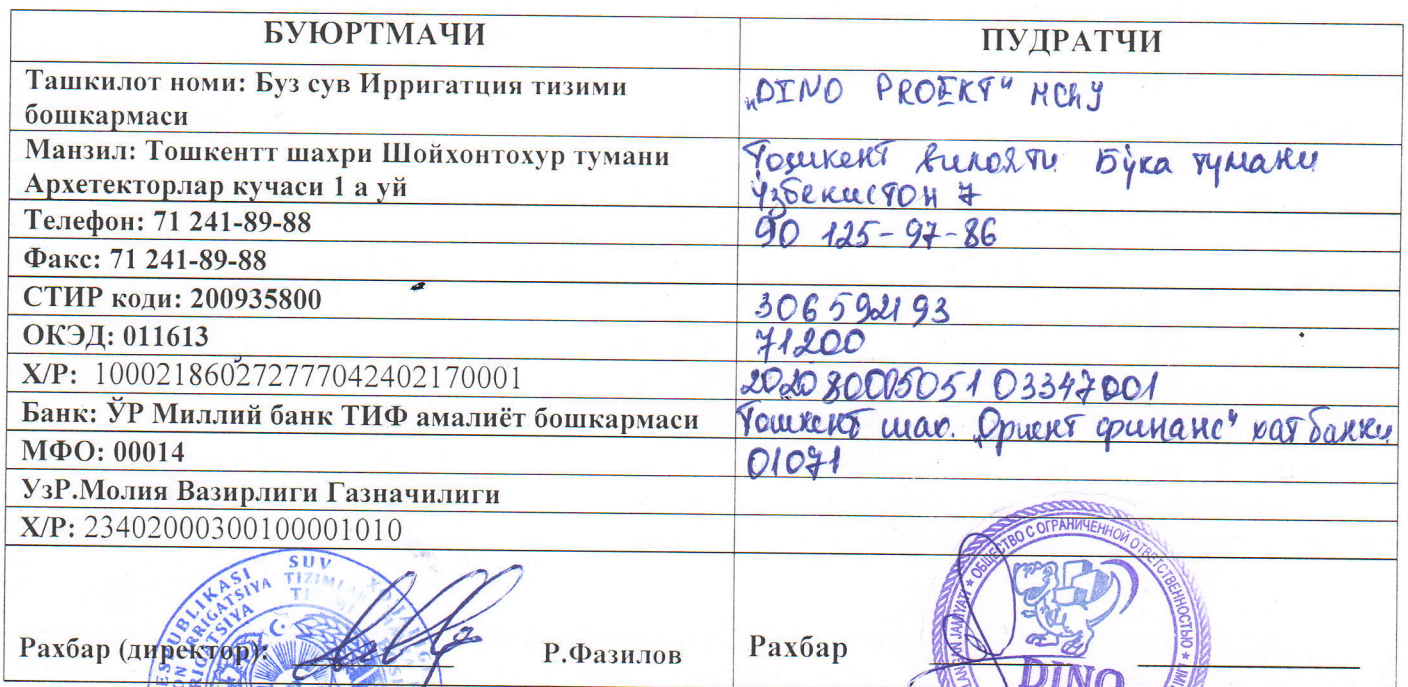 БУЮРТМАЧИ
ПУДРАТЧИ
Ташкилот номи: Буз сув Ирригатция тизими
бошкармаси
„DINO PROEKT“ МЧЖ
Манзил: Тошкентт шахри Шойхонтохур тумани
Архетекторлар кучаси 1 а уй
Тошкент вилояти Бўка тумани
Ўзбекистон 7
Телефон: 71 241-89-88
90 125-97-86
Факс: 71 241-89-88
СТИР коди: 200935800
306592193
ОКЭД: 011613
71200
Х/Р: 100021860272777042402170001
20208000505103347001
Банк: ЎР Миллий банк ТИФ амалиёт бошкармаси
Тошкент шах. „Ориент финанс“ хат банки
МФО: 00014
01071
УзР.Молия Вазирлиги Газначилиги
Х/Р: 23402000300100001010
Рахбар (директор):
Р.Фазилов
Рахбар
SUV
TIZIMLARI
IRRIGATSIYA
ОБЩЕСТВО С ОГРАНИЧЕННОЙ ОТВЕТСТВЕННОСТЬЮ
DINO